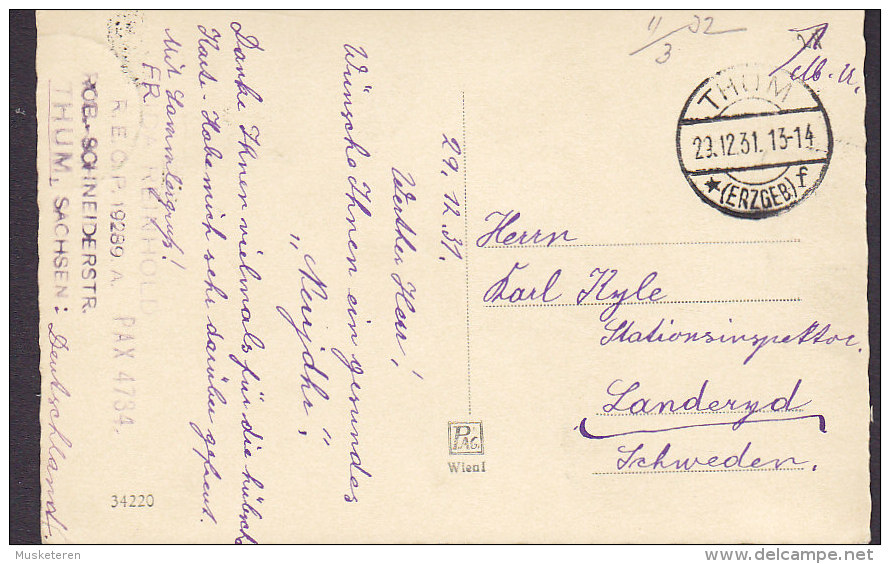 29. 12. 31.
Werther Herr!
Wünsche Ihnen ein gesundes
„Neujahr,"
Danke Ihnen vielmals für die hübsche
Karte. Habe mich sehr darüber gefreut.
Mit Sammlergruß!
FRIEDA REINHOLD
R.E.C.P. 19289 A. PAX 4734.
ROB.-SCHNEIDERSTR.
THUM, SACHSEN: Deutschland.
34220
11/3 32
THUM
29.12.31. 13-14
★ (ERZGEB) f
Herrn
Karl Kyle
Stationsinspektor.
Landeryd
Schweden.
PAG.
Wien I
Musketeren
delcampe.net